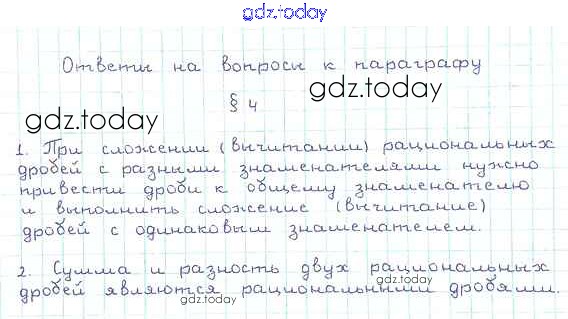 gdz.today
Ответы на вопросы к параграфу
gdz.today
§ 4
gdz.today
1. При сложении (вычитании) рациональных
дробей с разными знаменателями нужно
привести дроби к общему знаменателю
и выполнить сложение (вычитание)
дробей с одинаковым знаменателем.
2. Сумма и разность двух рациональных
дробей являются рациональными дробями.
gdz.today